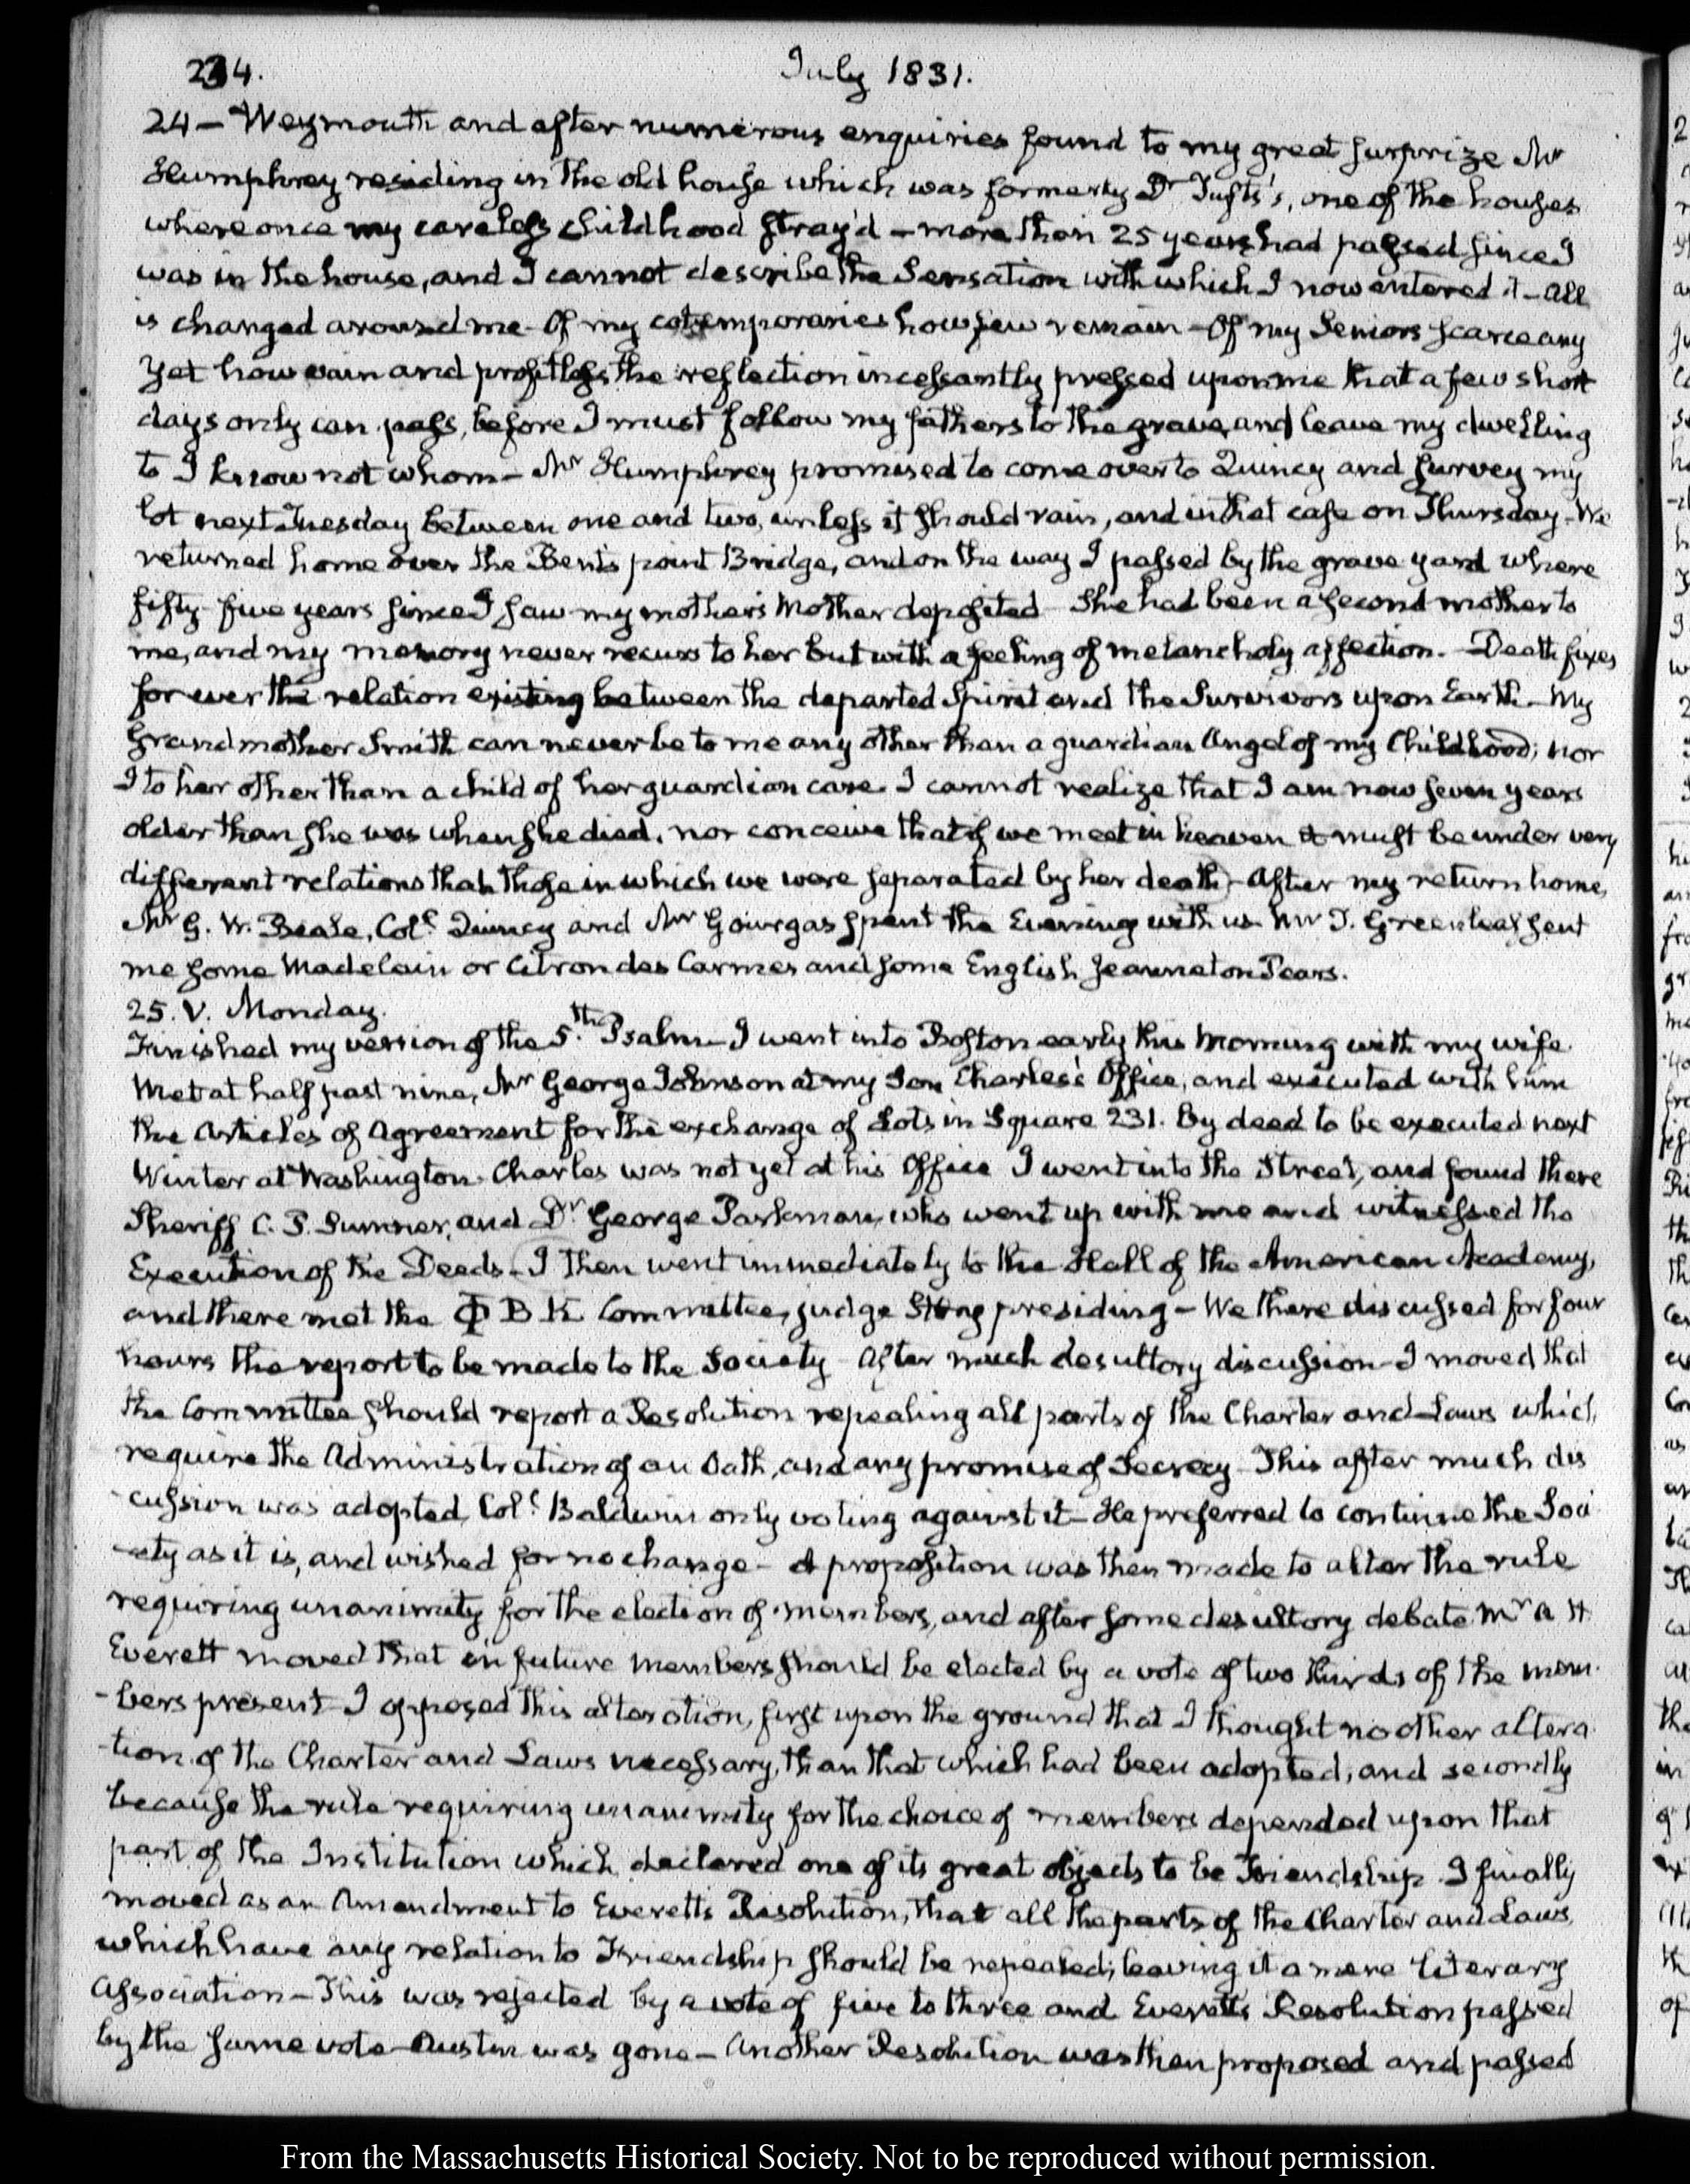 234.
July 1831.
24 — Weymouth and after numerous enquiries found to my great surprize Mr
Humphrey residing in the old house which was formerly Dr Tufts's, one of the houses
where once my careless childhood stray'd — more than 25 years had passed since I
was in the house, and I cannot describe the Sensation with which I now entered it — All
is changed around me — Of my cotemporaries how few remain — Of my Seniors scarce any
Yet how vain and profitless the reflection incessantly pressed upon me that a few short
days only can pass, before I must follow my fathers to the grave, and leave my dwelling
to I know not whom — Mr Humphrey promised to come over to Quincy and survey my
lot next Tuesday between one and two, unless it should rain, and in that case on Thursday — We
returned home over the Bent's point Bridge, and on the way I passed by the grave yard where
fifty-five years since I saw my mother's Mother deposited — She had been a second mother to
me, and my memory never recurs to her but with a feeling of melancholy affection. — Death fixes
for ever the relation existing between the departed Spirit and the Survivors upon Earth — My
Grandmother Smith can never be to me any other than a guardian Angel of my Childhood; nor
I to her other than a child of her guardian care. I cannot realize that I am now seven years
older than she was when she died, nor conceive that if we meet in heaven it must be under very
different relations than those in which we were separated by her death — After my return home,
Mr G. W. Beale, Coll Quincy and Mr Gourgas spent the Evening with us. Mr T. Greenleaf sent
me some Madelain or Citron des Carmes and some English Jeanneton Pears.
25. V. Monday.
Finished my version of the 5.th Psalm — I went into Boston early this Morning with my wife.
Met at half past nine, Mr George Johnson at my Son Charles's Office, and executed with him
the Articles of Agreement for the exchange of Lots in Square 231. By deed to be executed next
Winter at Washington. Charles was not yet at his Office I went into the Street, and found there
Sheriff C. P. Sumner, and Dr George Parkman, who went up with me and witnessed the
Execution of the Deeds — I then went immediately to the Hall of the American Academy,
and there met the Φ B K Committee, judge Story presiding — We there discussed for four
hours the report to be made to the Society — After much desultory discussion — I moved that
the Committee should report a Resolution repealing all parts of the Charter and Laws which
require the Administration of an Oath, and any promise of Secrecy — This after much dis
cussion was adopted, Coll Baldwin only voting against it — He preferred to continue the Soci
-ety as it is, and wished for no change — A proposition was then made to alter the rule
requiring unanimity for the election of members, and after some desultory debate Mr A H
Everett moved that in future members should be elected by a vote of two thirds of the mem-
-bers present — I opposed this alteration, first upon the ground that I thought no other altera
-tion of the Charter and Laws necessary, than that which had been adopted; and secondly
because the rule requiring unanimity for the choice of members depended upon that
part of the Institution which declared one of its great objects to be Friendship. I finally
moved as an Amendment to Everett's Resolution, that all the parts of the Charter and Laws,
which have any relation to Friendship should be repealed; leaving it a mere literary
Association — This was rejected by a vote of five to three and Everett's Resolution passed
by the same vote — Austin was gone — Another Resolution was then proposed and passed
From the Massachusetts Historical Society. Not to be reproduced without permission.